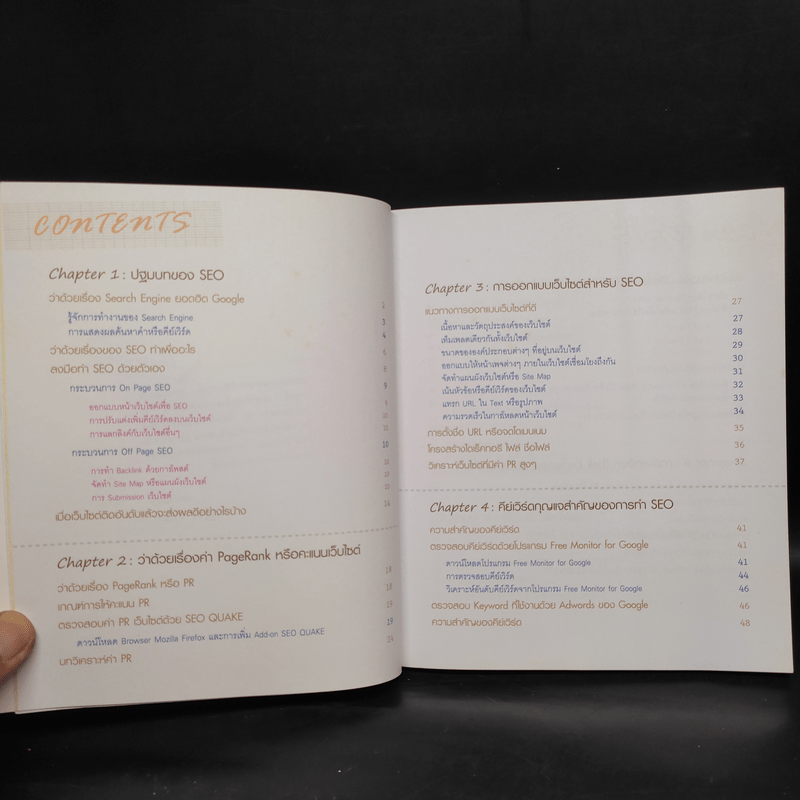 CONTENTS
Chapter 1 : ปฐมบทของ SEO
ว่าด้วยเรื่อง Search Engine ยอดฮิต Google 2
รู้จักการทำงานของ Search Engine 3
การแสดงผลค้นหาคำหรือคีย์เวิร์ด 4
ว่าด้วยเรื่องของ SEO ทำเพื่ออะไร 6
ลงมือทำ SEO ด้วยตัวเอง 8
กระบวนการ On Page SEO 9
ออกแบบหน้าเว็บไซต์เพื่อ SEO
การปรับแต่งเพิ่มคีย์เวิร์ดลงบนเว็บไซต์ 10
การแลกลิงค์กับเว็บไซต์อื่นๆ 10
กระบวนการ Off Page SEO 10
การทำ Backlink ด้วยการโพสต์
จัดทำ Site Map หรือแผนผังเว็บไซต์
การ Submission เว็บไซต์
เมื่อเว็บไซต์ติดอันดับแล้วจะส่งผลดีอย่างไรบ้าง 14
Chapter 2 : ว่าด้วยเรื่องค่า PageRank หรือคะแนนเว็บไซต์
ว่าด้วยเรื่อง PageRank หรือ PR 18
เกณฑ์การให้คะแนน PR 19
ตรวจสอบค่า PR เว็บไซต์ด้วย SEO QUAKE 19
ดาวน์โหลด Browser Mozilla Firefox และการเพิ่ม Add-on SEO QUAKE 19
บทวิเคราะห์ค่า PR 24
Chapter 3 : การออกแบบเว็บไซต์สำหรับ SEO
แนวทางการออกแบบเว็บไซต์ที่ดี 27
เนื้อหาและวัตถุประสงค์ของเว็บไซต์ 27
เท็มเพลตเดียวกันทั้งเว็บไซต์ 28
ขนาดขององค์ประกอบต่างๆ ที่อยู่บนเว็บไซต์ 29
ออกแบบให้หน้าเพจต่างๆ ภายในเว็บไซต์เชื่อมโยงถึงกัน 30
จัดทำแผนผังเว็บไซต์หรือ Site Map 31
เน้นหัวข้อหรือคีย์เวิร์ดของเว็บไซต์ 32
แทรก URL ใน Text หรือรูปภาพ 33
ความรวดเร็วในการโหลดหน้าเว็บไซต์ 34
การตั้งชื่อ URL หรือจดโดเมนเนม 35
โครงสร้างไดเร็คทอรี ไฟล์ ชื่อไฟล์ 36
วิเคราะห์เว็บไซต์ที่มีค่า PR สูงๆ 37
Chapter 4 : คีย์เวิร์ดกุญแจสำคัญของการทำ SEO
ความสำคัญของคีย์เวิร์ด 41
ตรวจสอบคีย์เวิร์ดด้วยโปรแกรม Free Monitor for Google 41
ดาวน์โหลดโปรแกรม Free Monitor for Google 41
การตรวจสอบคีย์เวิร์ด 44
วิเคราะห์อันดับคีย์เวิร์ดจากโปรแกรม Free Monitor for Google 46
ตรวจสอบ Keyword ที่ใช้งานด้วย Adwords ของ Google 46
ความสำคัญของคีย์เวิร์ด 48